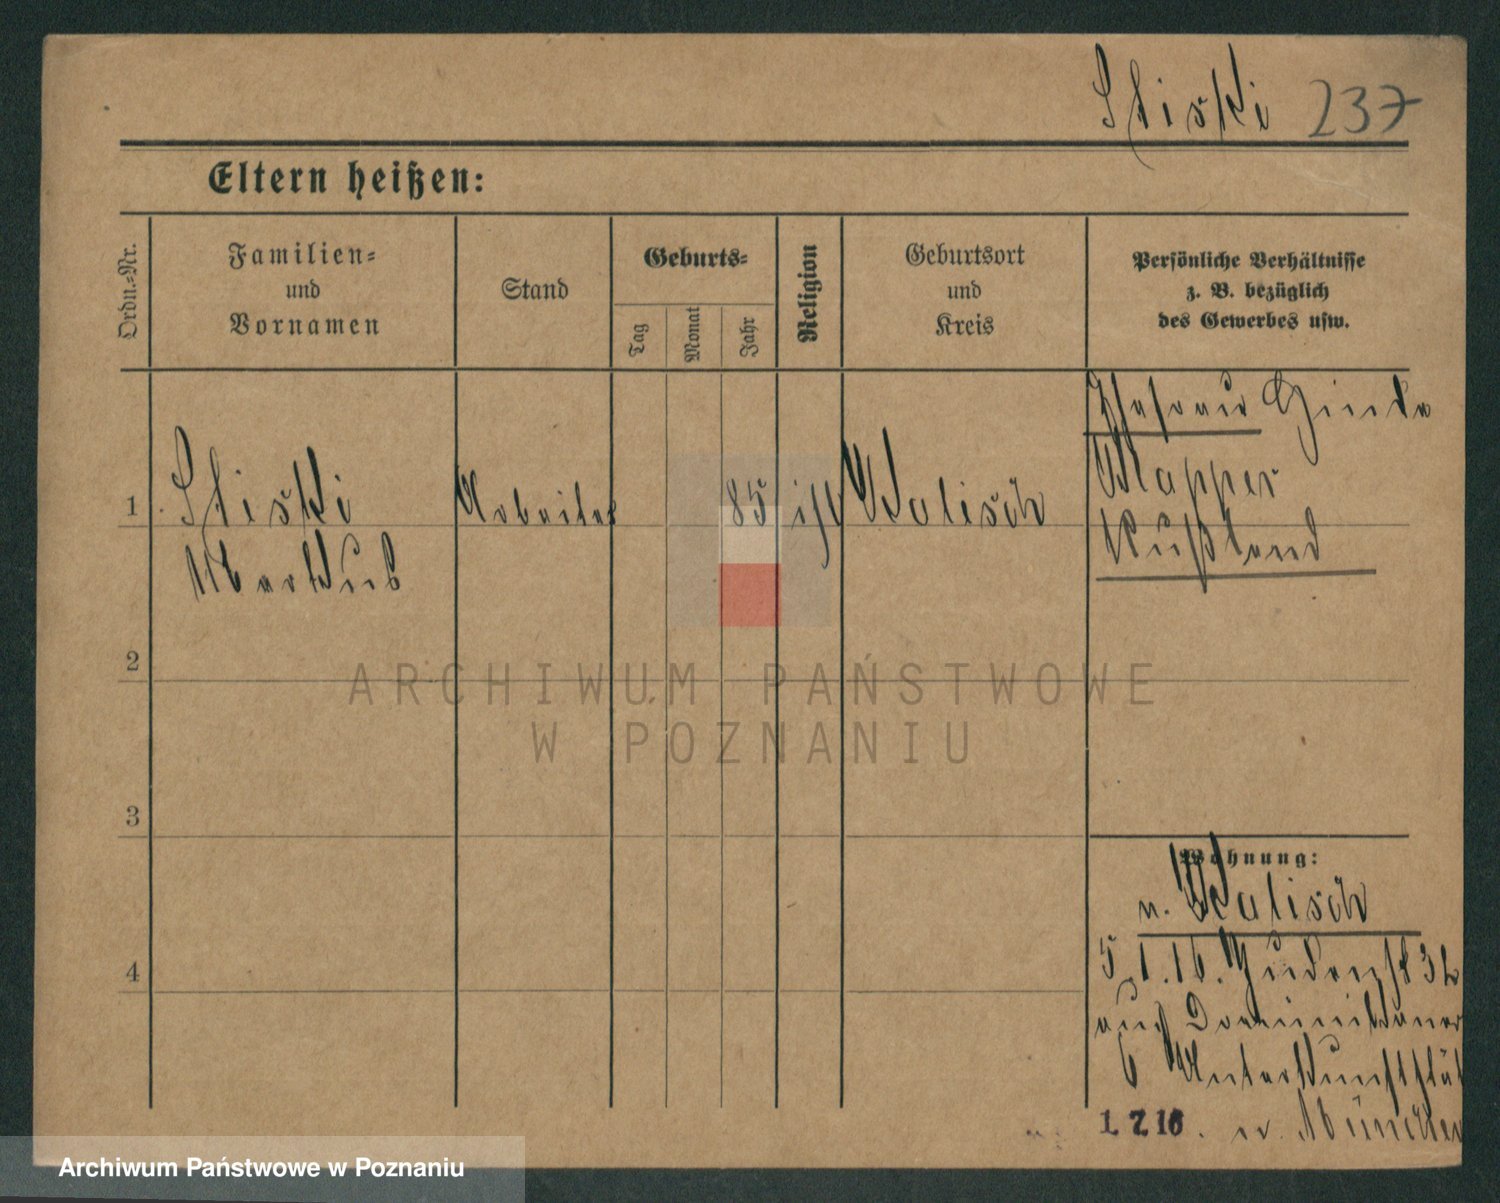 Sliski 237
Eltern heißen:
Ordn.-Nr.
Familien-
und
Vornamen
Stand
Geburts-
Tag
Monat
Jahr
Religion
Geburtsort
und
Kreis
Persönliche Verhältnisse
z. B. bezüglich
des Gewerbes usw.
1
Sliski
Markus
Arbeiter
85
isr
Kalisch
Ehefrau Hinda
Klapper
Rußland
2
3
4
Wohnung:
n. Kalisch
5. 1. 16. Judenstr 32
auch Dominikaner
6
1. 7. 16. n. München
ARCHIWUM PAŃSTWOWE
W POZNANIU
Archiwum Państwowe w Poznaniu